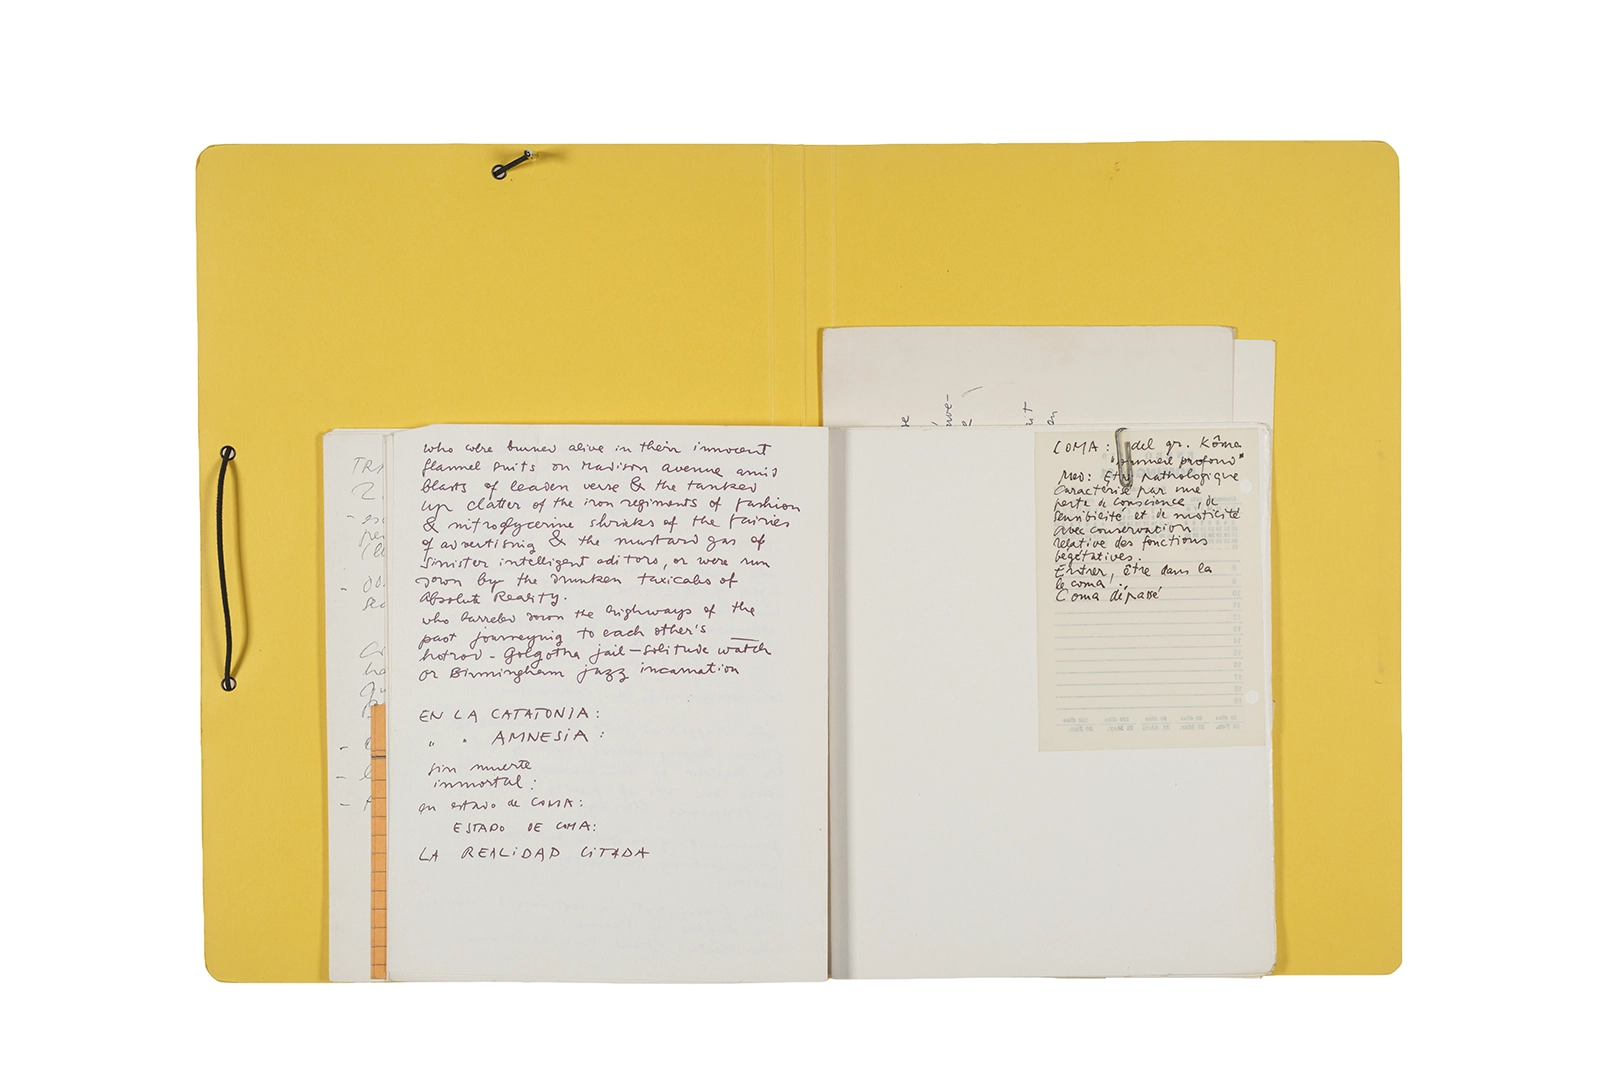 who were burned alive in their innocent
flannel suits on Madison avenue amid
blasts of leaden verse & the tanked
up clatter of the iron regiments of fashion
& nitroglycerine shrieks of the fairies
of advertising & the mustard gas of
sinister intelligent editors, or were run
down by the drunken taxicabs of
Absolute Reality.
who barreled down the highways of the
past journeying to each other's
hotrod - Golgotha jail - solitude watch
or Birmingham jazz incarnation
EN LA CATATONIA:
" " AMNESIA:
sin muerte
inmortal:
en estado de COMA:
ESTADO DE COMA:
LA REALIDAD CITADA
COMA: del gr. Kôma
"sommeil profond"
Med: Etat pathologique
caractérisé par une
perte de conscience, de
sensibilité et de moticité
avec conservation
relative des fonctions
végétatives.
Entrer, être dans la
le coma.
Coma dépassé